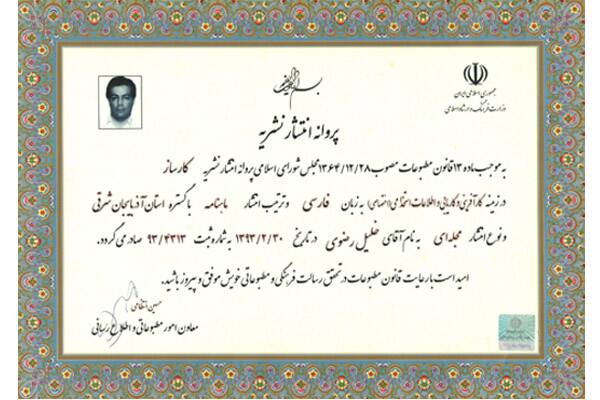 جمهوری اسلامی ایران
وزارت فرهنگ و ارشاد اسلامی
پروانه انتشار نشریه
به موجب ماده ۱۳ قانون مطبوعات مصوب ۱۳۶۴/۱۲/۲۸ مجلس شورای اسلامی پروانه انتشار نشریه کارساز
در زمینه کارآفرینی و کاریابی و اطلاعات استخدامی (اختصاصی) به زبان فارسی و ترتیب انتشار ماهنامه با گستره استان آذربایجان شرقی
و نوع انتشار مجله‌ای به نام آقای خلیل رضوی در تاریخ ۱۳۹۳/۲/۳۰ به شماره ثبت ۹۳/۴۳۱۳ صادر می گردد.
امید است با رعایت قانون مطبوعات در تحقق رسالت فرهنگی و مطبوعاتی خویش موفق و پیروز باشید.
حسین انتظامی
معاون امور مطبوعاتی و اطلاع رسانی